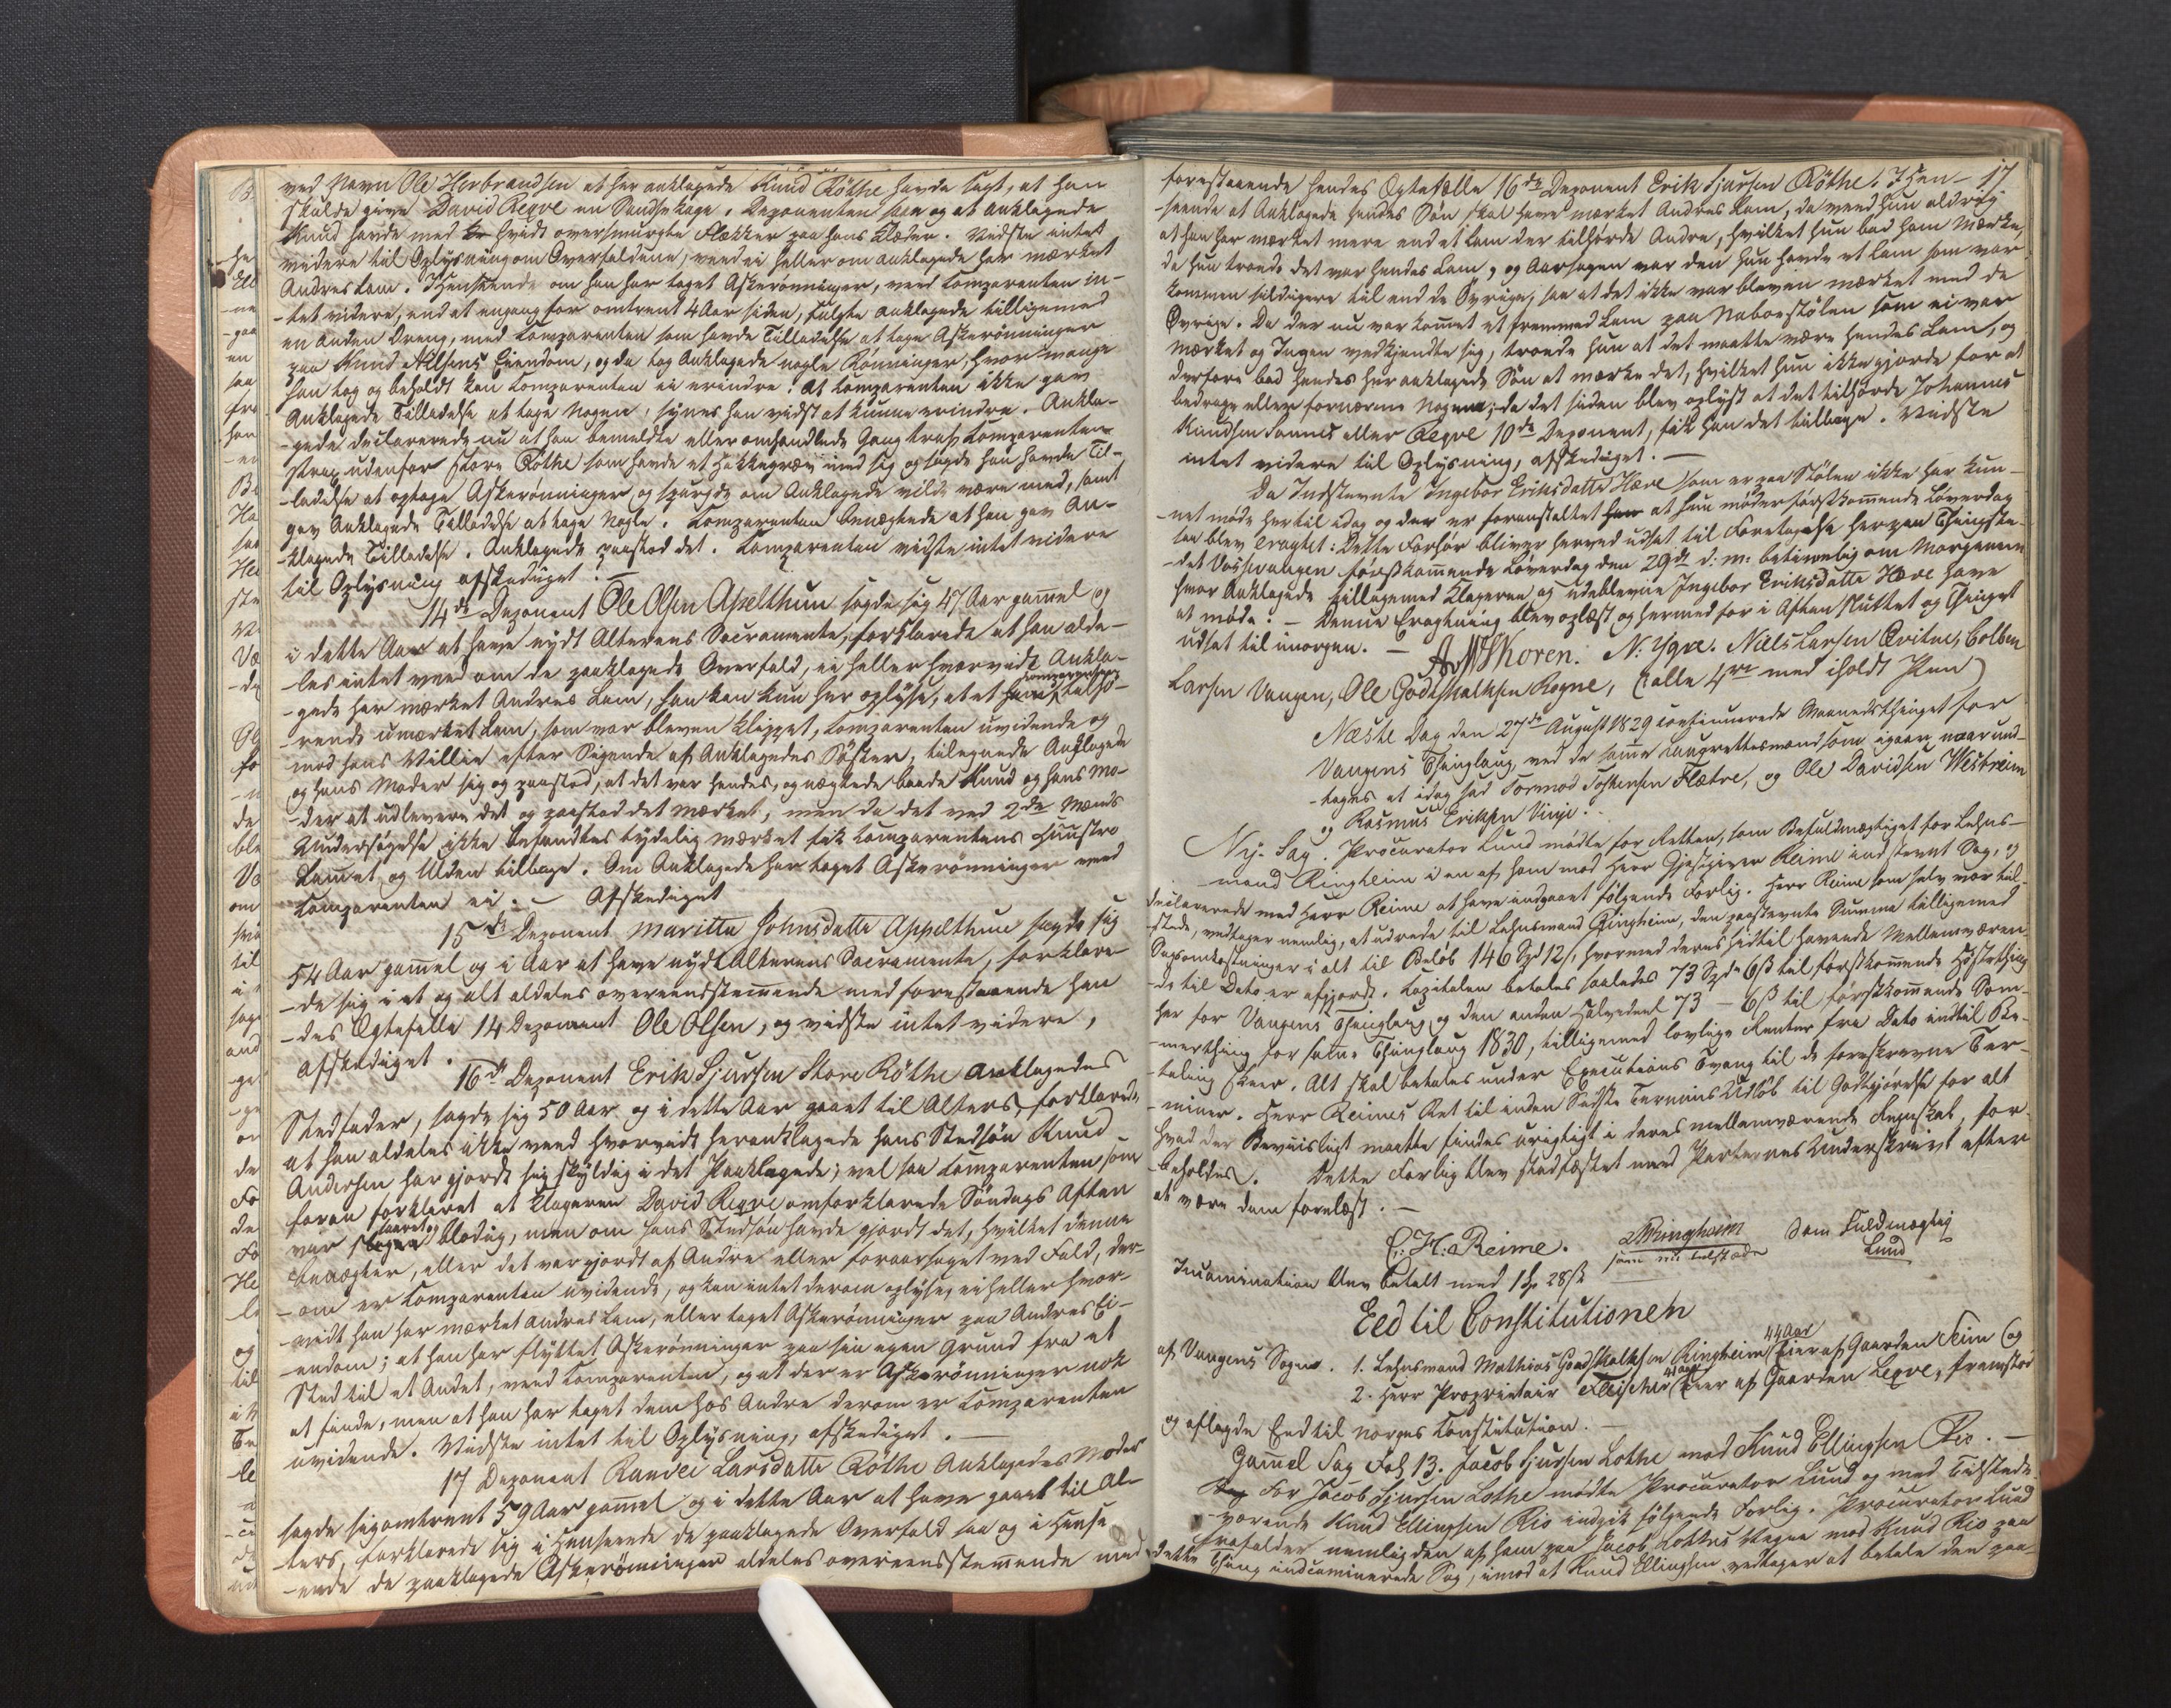 ved Navn Ole Herbrandsen at her anklagede Knud Röthe havde sagt, at han
skulde give David Reqve en Sandsekage. Deponenten saae og at anklagede
Knud havde med hvidt oversmurgte Flækker paa hans Klæder. Vidste intet
videre til Oplysning om Overfaldene, veed ei heller om anklagede har mærket
Andres Lam. I Henseende om han har taget Askerønninger, veed Comparenten in-
-tet videre, end at engang for omtrent 4 Aar siden, fulgte anklagede tilligemed
en anden Dreng, med Comparenten som havde Tilladelse at tage Askerønninger
paa Knud Nilsens Eiendom, og da tog Anklagede nogle Rønninger, hvor mange
han tog og beholdt kan Comparenten ei erindre. At Comparenten ikke gav
Anklagede Tilladelse at tage Nogen, synes han vidst at kunne erindre. Ankla-
-gede declarerede nu at han bemeldte eller omhandlede Gang traf Comparenten
strax udenfor store Röthe som havde et Hakkegrev med sig og sagde han havde Til-
-ladelse at optage Askerønninger, og spurgde om Anklagede vilde være med, samt
gav Anklagede Tilladelse at tage Nogle. Comparenten benægtede at han gav An-
-klagede Tilladelse. Anklagede paastod det. Comparenten vidste intet videre
til Oplysning afskediget.
14de Deponent Ole Olsen Appelthun sagde sig 47 Aar gamel og
i dette Aar at have nydt Alterens Sacramente, forklarede at han alde-
-les intet veed om de paaklagede Overfald, ei heller hvorvidt Ankla-
-gede har mærket Andres Lam, han kan kun her oplyse, at et Comparenten tilhö-
-rende umærket Lam, som var bleven klippet, Comparenten uvidende og
mod hans Villie efter Sigende af Anklagedes Söster, tilegnede Anklagede
og hans Moder sig og paastod, at det var hendes, og nægtede baade Knud og hans Mo-
-der at udlevere det og paastod det mærket, men da det ved 2de Mænds
Undersøgelse ikke befandtes tydelig mærket fik Comparentens Hustroe
Lammet og Ulden tilbage. Om Anklagede har taget Askerønninger veed
Comparenten ei. – Afskediget
15de Deponent Maritta Johnsdatter Appelthun sagde sig
54 Aar gamel og i Aar at have nydt Alterens Sacramente, forklare-
-de sig i et og alt aldeles overeenstemmende med forestaaende hen-
-des Ægtefælle 14 Deponent Ole Olsen, og vidste intet videre,
afskediget.
16de Deponent Erik Sjursen Store Röthe Anklagedes
Stedfader, sagde sig 50 Aar og i dette Aar gaaet til Alters, forklarede
at han aldeles ikke veed hvorvidt heranklagede hans Stedsön Knud
Andersen har gjordt sig skyldig i det Paaklagede; vel saa Comparenten som
foran forklaret at Klageren David Reqve omforklarede Söndags Aften
var saaret og blodig, men om hans Stedsön havde gjordt det, hvilket denne
benægter, eller det var gjordt af Andre eller foraarsaget ved Fald, der-
-om er Comparenten uvidende, og kan intet derom oplyse, ei heller hvor-
-vidt han har mærket Andres Lam, eller taget Askerønninger paa Andres Ei-
-endom; at han har flyttet Askerønninger paa sin egen Grund fra et
Sted til et Andet, veed Comparenten, og at der er Askerønninger nok
at finde, men at han har taget dem hos Andre derom er Comparenten
uvidende. Vidste intet til Oplysning, afskediget. —
17 Deponent Randei Larsdatter Röthe Anklagedes Moder
sagde sig omtrent 59 Aar gamel og i dette Aar at have gaaet til Al-
-ters, forklarede sig i Henseende de paaklagede Overfald saa og i Hense-
-ende de paaklagede Askerønninger aldeles overeensstemmende med
17
forestaaende hendes Ægtefælle 16de Deponent Erik Sjursen Röthe. I Hen-
-seende at Anklagede hendes Sön skal have mærket Andres Lam, da veed hun aldrig
at han har mærket mere end et Lam der tilhørde Andre, hvilket hun bad ham mærke,
da hun troede det var hendes Lam, og Aarsagen var den hun havde et Lam som var
kommen sildigere til end de Øvrige, saa at det ikke var bleven mærket med de
Øvrige. Da der nu var kommet et fremmed Lam paa Nabostølen som ei var
mærket og Ingen vedkjendte sig, troede hun at det maatte være hendes Lam, og
derfore bad hendes her anklagede Sön at mærke det, hvilket hun ikke gjorde for at
bedrage eller fornærme Nogen; da det siden blev oplyst at det tilhörde Johannes
Knudsen Sonnes eller Reqve 10de Deponent, fik han det tilbage. Vidste
intet videre til Oplysning, afskediget. —
Da Indstevnte Ingebor Eriksdatter Hæve som er paa Stølen ikke har kun-
-net møde her til idag og der er foranstaltet at hun møder førstkommende Løverdag
saa blev eragtet: Dette Forhör bliver herved udsat til Foretagelse her paa Thingste-
-det Vossevangen førstkommende Løverdag den 29de d: m: betimelig om Morgenen
hvor Anklagede tilligemed Klageren og udeblevne Ingebor Eriksdatter Hæve have
at møde. — Denne Eragtning blev oplæst og hermed for i Aften sluttet og Thinget
udsat til imorgen. —
A. M. Koren. N: Yqve. Niels Larsen Qvitne, Colben
Larsen Vangen, Ole Godtskalksen Rogne, (alle 4re med iholdt Pen)
Næste Dag den 27de August 1829 continuerede Maanedsthinget for
Vangens Thinglaug, ved de samme Laugrettesmænd som igaar, naar und-
-tages at idag sad Tormod Torstensen Flætre, og Ole Davidsen Westreim
og Rasmus Eriksen Vinje.
Ny Sag. Procurator Lund mødte for Retten, som Befuldmægtiget for Lehns-
-mand Ringheim i en af ham mod Herr Gjestgiver Reime indstevnt Sag, og
declarerede med Herr Reime at have indgaaet følgende Forlig. Herr Reime som selv var til-
-stede, vedtager nemlig, at udrede til Lehnsmand Ringheim, den paastevnte Summa tilligemed
Sagsomkostninger i alt til Beløb 146 Spd 12 ß, hvormed deres hidtil havende Mellemværen-
-de til Dato er afgjordt. Capitalen betales saaledes 73 Spd 6 ß til førstkommende Høstething
her for Vangens Thinglaug og den anden Halvedeel 73 – 6 ß til førstkommende Som-
-merthing for samme Thinglaug 1830, tilligemed lovlige Renter fra Dato indtil Be-
-taling skeer. Alt skal betales under Executions Tvang til de foreskrevne Ter-
-miner. Herr Reimes Ret til inden Sidste Termins Udløb til Godtgjørelse for alt
hvad der Beviisligt maatte findes urigtigt i deres mellemværende Regnskab, for-
beholdes. Dette Forlig blev stadfæstet med Parternes Underskrivt efter
at være dem forelæst. —
C: H: Reime. M Ringheim Som Fuldmægtig
som nu tilstæde Lund
Incamination blev betalt med 1 Sp 28 ß
Eed til Constitutionen
af Vangens Sogn. 1. Lehnsmand Mathias Godskalksen Ringheim 44 Aar Eier af Gaarden Seim og
2. Herr Proprietair Fleischer 41 Aar Eier af Gaarden Leqve, fremstod
og aflagde Eed til Norges Constitution. —
Gamel Sag Fol 13. Jacob Sjursen Lothe mod Knud Ellingsen Rio. —
For Jacob Sjursen Lothe mødte Procurator Lund og med Tilstede-
-værende Knud Ellingsen Rio indgik følgende Forlig. Procurator Lund
frafalder nemlig den af ham paa Jacob Lothes Vegne mod Knud Rio paa
dette Thing indcaminerede Sag, imod at Knud Ellingsen vedtager at betale den paa-